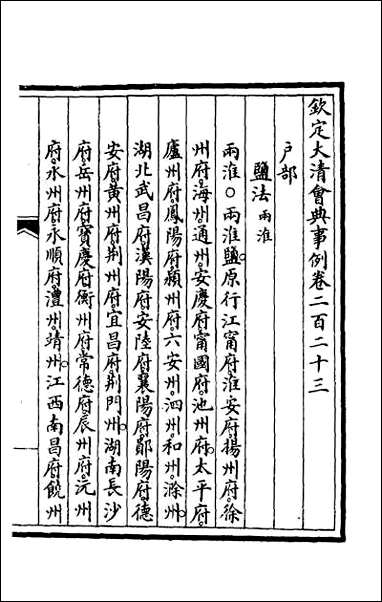 欽定大清會典事例卷二百二十三
戶部
鹽法兩淮
兩淮○兩淮鹽原行江甯府淮安府揚州府徐
州府海州通州安慶府甯國府池州府太平府
廬州府鳳陽府潁州府六安州泗州和州滁州
湖北武昌府漢陽府安陸府襄陽府鄖陽府德
安府黃州府荆州府宜昌府荆門州湖南長沙
府岳州府寶慶府衡州府常德府辰州府沅州
府永州府永順府澧州靖州江西南昌府饒州